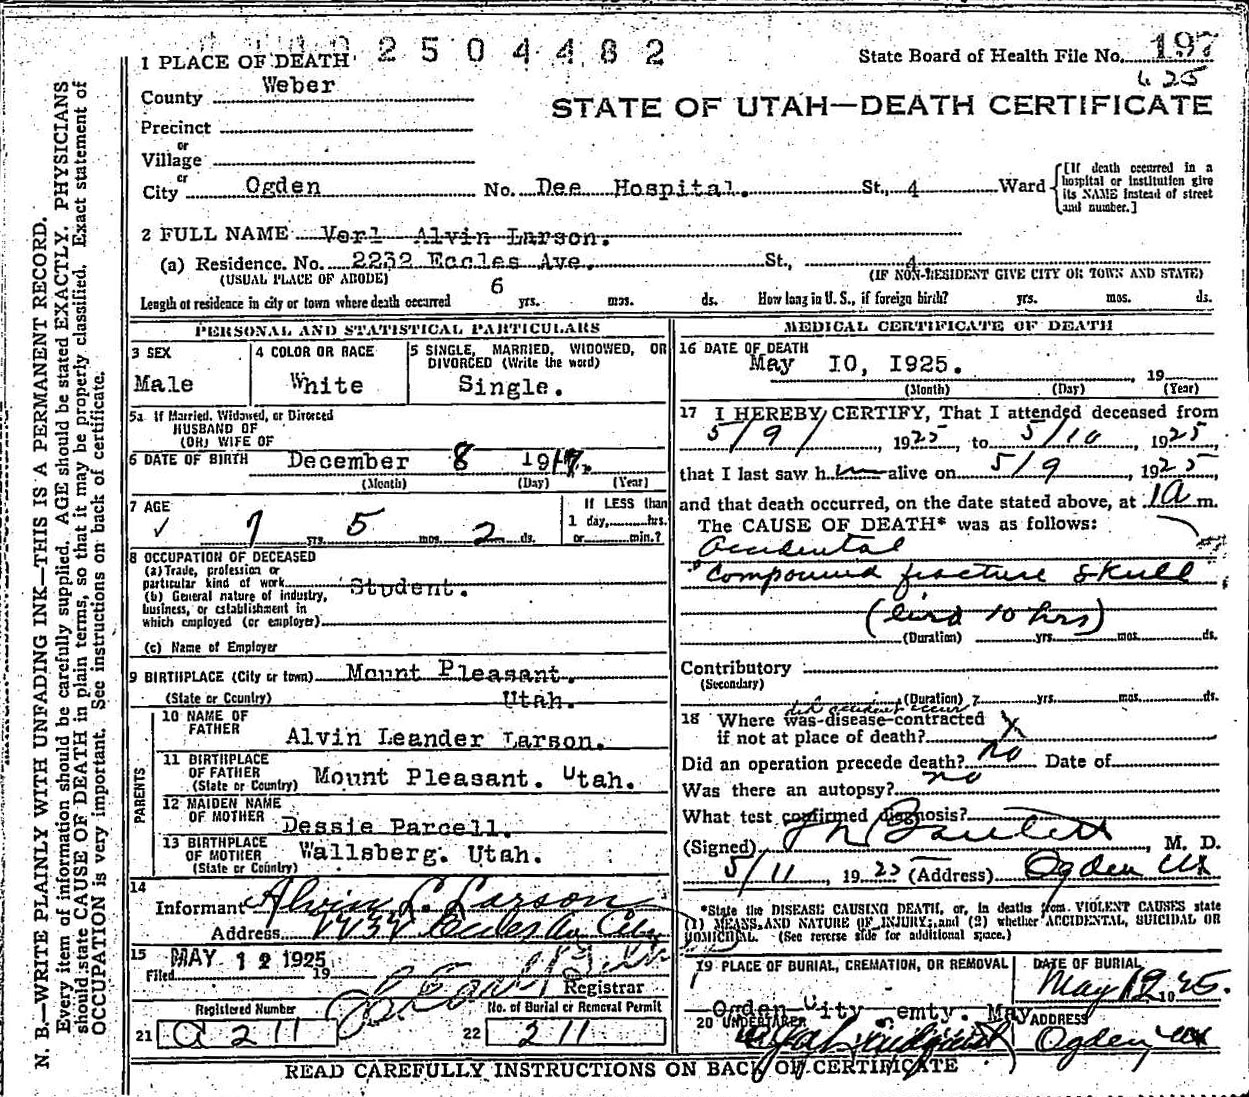 2504482
State Board of Health File No. 197
425
1 PLACE OF DEATH
County Weber
STATE OF UTAH—DEATH CERTIFICATE
Precinct
or
Village
or
City Ogden No. Dee Hospital. St., 4 Ward
[If death occurred in a hospital or institution give its NAME instead of street and number.]
2 FULL NAME Verl Alvin Larson.
(a) Residence. No. 2232 Eccles Ave. St., 4
(USUAL PLACE OF ABODE) (IF NON-RESIDENT GIVE CITY OR TOWN AND STATE)
Length of residence in city or town where death occurred 6 yrs. mos. ds. How long in U. S., if foreign birth? yrs. mos. ds.
PERSONAL AND STATISTICAL PARTICULARS
3 SEX
Male
4 COLOR OR RACE
White
5 SINGLE, MARRIED, WIDOWED, OR DIVORCED (Write the word)
Single.
5a If Married, Widowed, or Divorced
HUSBAND OF
(OR) WIFE OF
6 DATE OF BIRTH December 8 1917.
(Month) (Day) (Year)
7 AGE
7 yrs. 5 mos. 2 ds.
If LESS than
1 day, hrs.
or min.?
8 OCCUPATION OF DECEASED
(a) Trade, profession or
particular kind of work Student.
(b) General nature of industry,
business, or establishment in
which employed (or employer)
(c) Name of Employer
9 BIRTHPLACE (City or town) Mount Pleasant.
(State or Country) Utah.
PARENTS
10 NAME OF FATHER
Alvin Leander Larson.
11 BIRTHPLACE OF FATHER
(State or Country) Mount Pleasant. Utah.
12 MAIDEN NAME OF MOTHER
Dessie Parcell.
13 BIRTHPLACE OF MOTHER
(State or Country) Wallsberg. Utah.
14
Informant Alvin L. Larson
Address 2232 Eccles Av City
15 MAY 12 1925
Filed 19
Registrar
Registered Number
21 a 211
No. of Burial or Removal Permit
22 211
MEDICAL CERTIFICATE OF DEATH
16 DATE OF DEATH
May 10, 1925. , 19
(Month) (Day) (Year)
17 I HEREBY CERTIFY, That I attended deceased from
5/9/ 1925, to 5/10, 1925,
that I last saw him alive on 5/9, 1925,
and that death occurred, on the date stated above, at 1a m.
The CAUSE OF DEATH* was as follows:
Accidental
Compound fracture Skull
(lived 10 hrs)
(Duration) yrs. mos. ds.
Contributory
(Secondary)
(Duration) yrs. mos. ds.
did accident occur
18 Where was disease contracted
if not at place of death? X
Did an operation precede death? no Date of
Was there an autopsy? no
What test confirmed diagnosis?
(Signed) , M. D.
5/11, 1925 (Address) Ogden Ut
*State the DISEASE CAUSING DEATH, or, in deaths from VIOLENT CAUSES state
(1) MEANS AND NATURE OF INJURY; and (2) whether ACCIDENTAL, SUICIDAL OR
HOMICIDAL. (See reverse side for additional space.)
19 PLACE OF BURIAL, CREMATION, OR REMOVAL
Ogden City Cemty. May
DATE OF BURIAL
May 12 1925.
20 UNDERTAKER
ADDRESS
Ogden Ut
READ CAREFULLY INSTRUCTIONS ON BACK OF CERTIFICATE
N. B.—WRITE PLAINLY WITH UNFADING INK—THIS IS A PERMANENT RECORD.
Every item of information should be carefully supplied. AGE should be stated EXACTLY. PHYSICIANS
should state CAUSE OF DEATH in plain terms, so that it may be properly classified. Exact statement of
OCCUPATION is very important. See instructions on back of certificate.